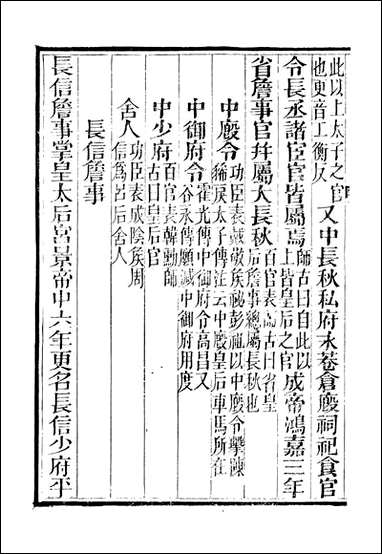 此以上太子之官
也更音工衡反
又中長秋私府永巷倉廄祠祀食官
令長丞諸宦官皆屬焉
師古曰自此以
上皆皇后之官
成帝鴻嘉三年
省詹事官并屬大長秋
百官表師古曰省皇
后詹事總屬長秋也
中廄令
功臣表戴敬矦祕彭祖以中廄令擊陳
豨戾太子傳注云中廄皇后車馬所在
中御府令
霍光傳中御府令高昌又
谷永傳願減中御府用度
中少府
百官表韓勳師
古曰皇后官
舍人
功臣表成陰矦周
信為呂后舍人
長信詹事
長信詹事掌皇太后宮景帝中六年更名長信少府平